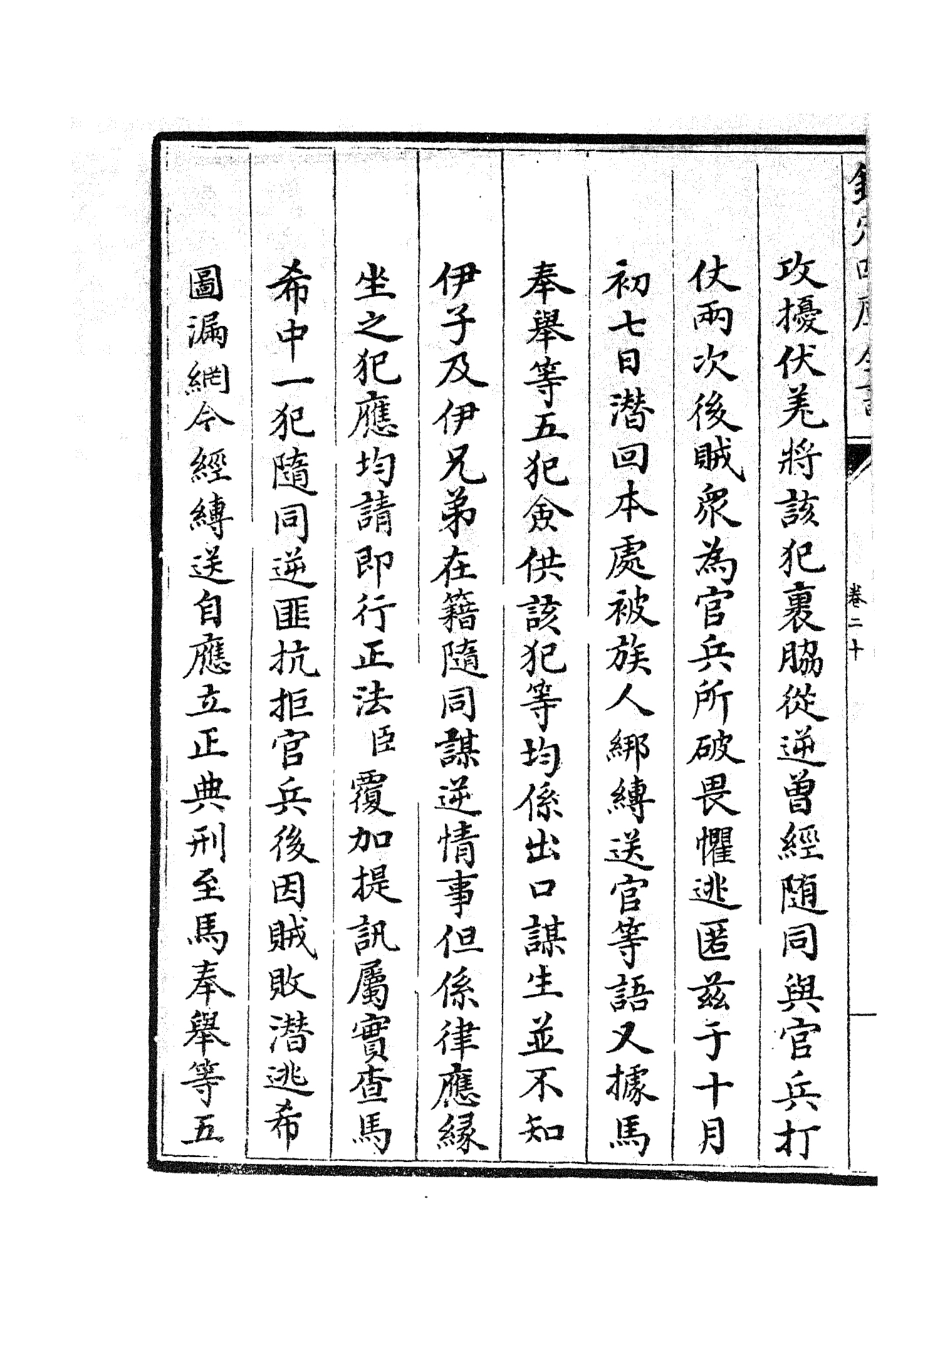 欽定四庫全書
卷二十
攻擾伏羌將該犯裹脇從逆曾經随同與官兵打
仗兩次後賊衆為官兵所破畏懼逃匿兹于十月
初七日潜回本處被族人綁縛送官等語又據馬
奉舉等五犯僉供該犯等均係出口謀生並不知
伊子及伊兄弟在籍隨同謀逆情事但係律應縁
坐之犯應均請即行正法臣覆加提訊屬實查馬
希中一犯隨同逆匪抗拒官兵後因賊敗潜逃希
圖漏網今經縛送自應立正典刑至馬奉舉等五